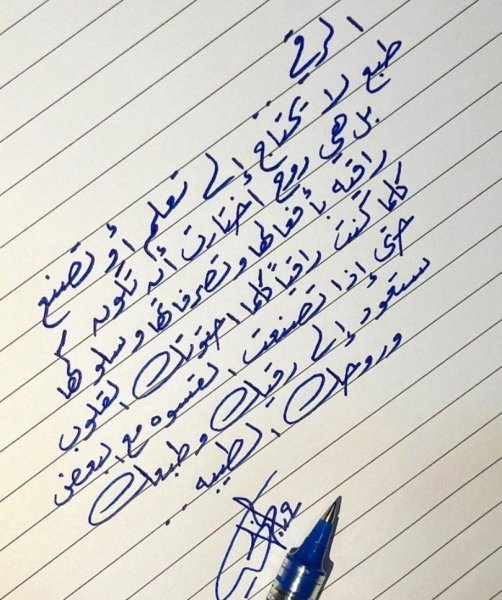 الرقي ..
طبع لا يحتاج إلى تعلم أو تصنع
بل هي روح أختارت أن تكون
راقية بأفعالها وتصرفاتها وسلوكها
كلما كنت راقياً كلما احتوتك القلوب
حتى إذا تصنعت القسوه مع البعض
ستعود إلى رقيك وطبعك
وروحك الطيبه ..